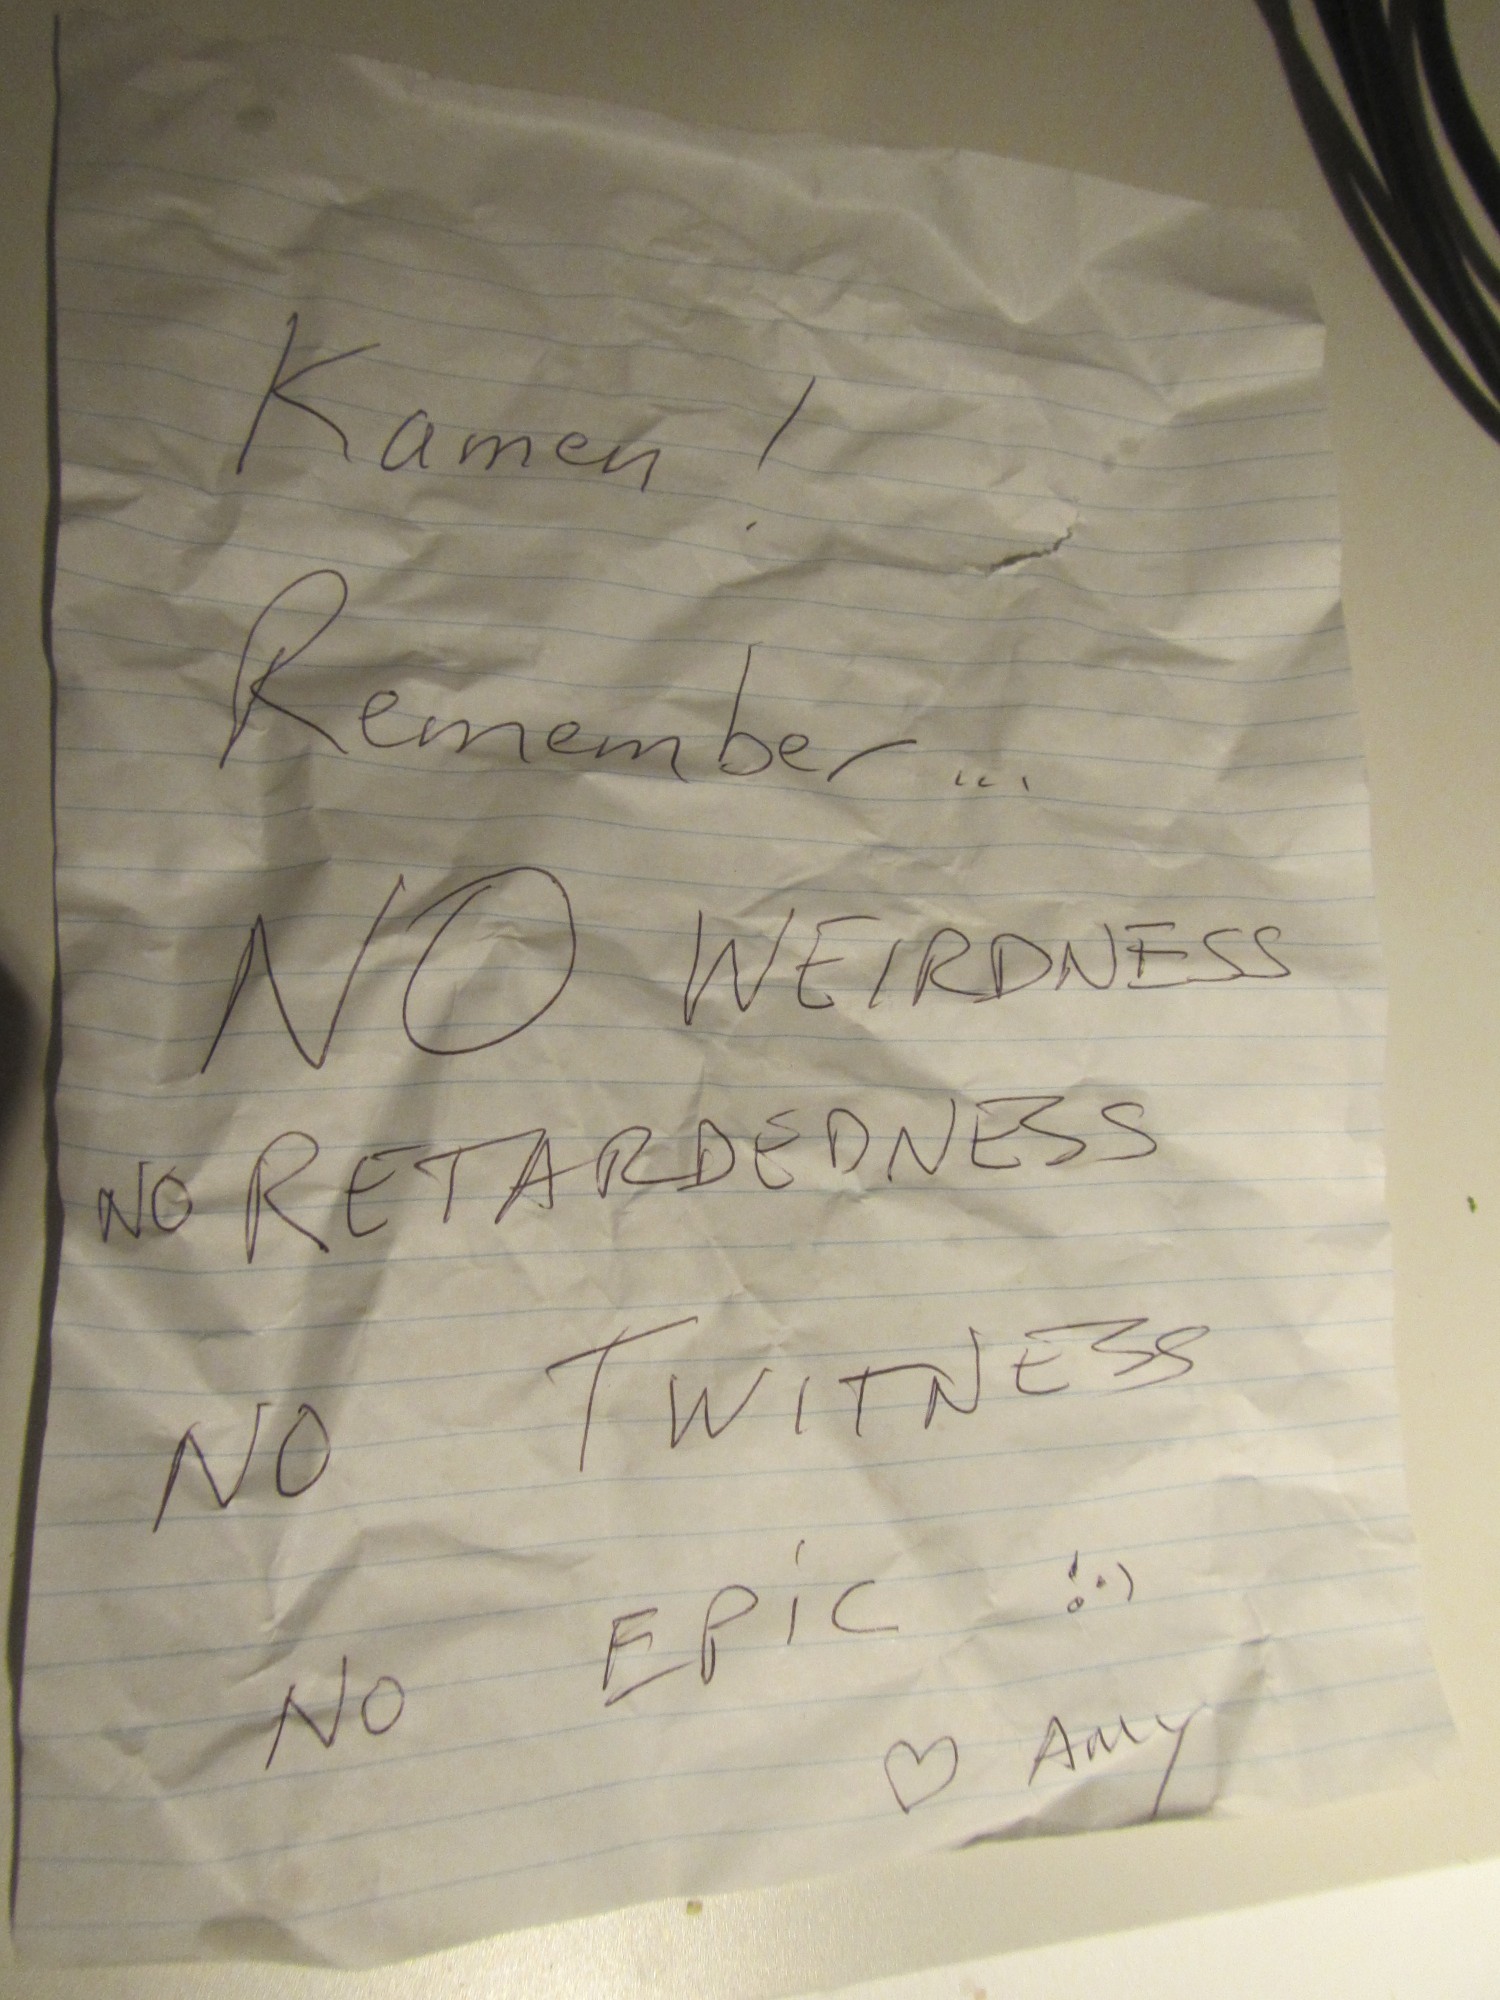 Kamen!
Remember...
NO WEIRDNESS
NO RETARDEDNESS
NO TWITNESS
NO EPiC !:)
♡ Amy